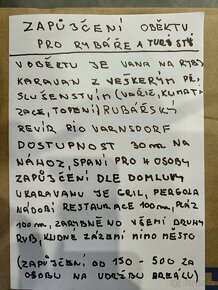 ZAPŮJČENÍ OBĚKTU
PRO RYBÁŘE A TURISTY
V OBĚKTU JE VANA NA RYBY
KARAVAN Z VEŠKERÝM PŘÍ
SLUŠENSTVÍM (VAŘIČ, KLIMAT
ZACE, TOPENÍ) RUBÁŘSKÝ
REVÍR RIO VARNSDORF
DOSTUPNOST 30m NA
NÁHOZ, SPANÍ PRO 4 OSOBY
ZAPŮJČENÍ DLE DOMLUVY
U KARAVANU JE GRIL, PERGOLA
NÁDOBÍ RESTAURACE 100m, PLÁŽ
100m, ZARYBNĚNO VŠEMI DRUHY
RYB, KLIDNÉ ZÁZEMÍ MIMO MĚSTO
(ZAPŮJČENÍ OD 150 - 500 ZA
OSOBU NA UDRŽBU AREÁLU)